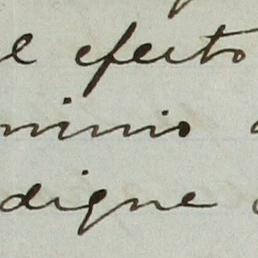 l efecto
minio
digne